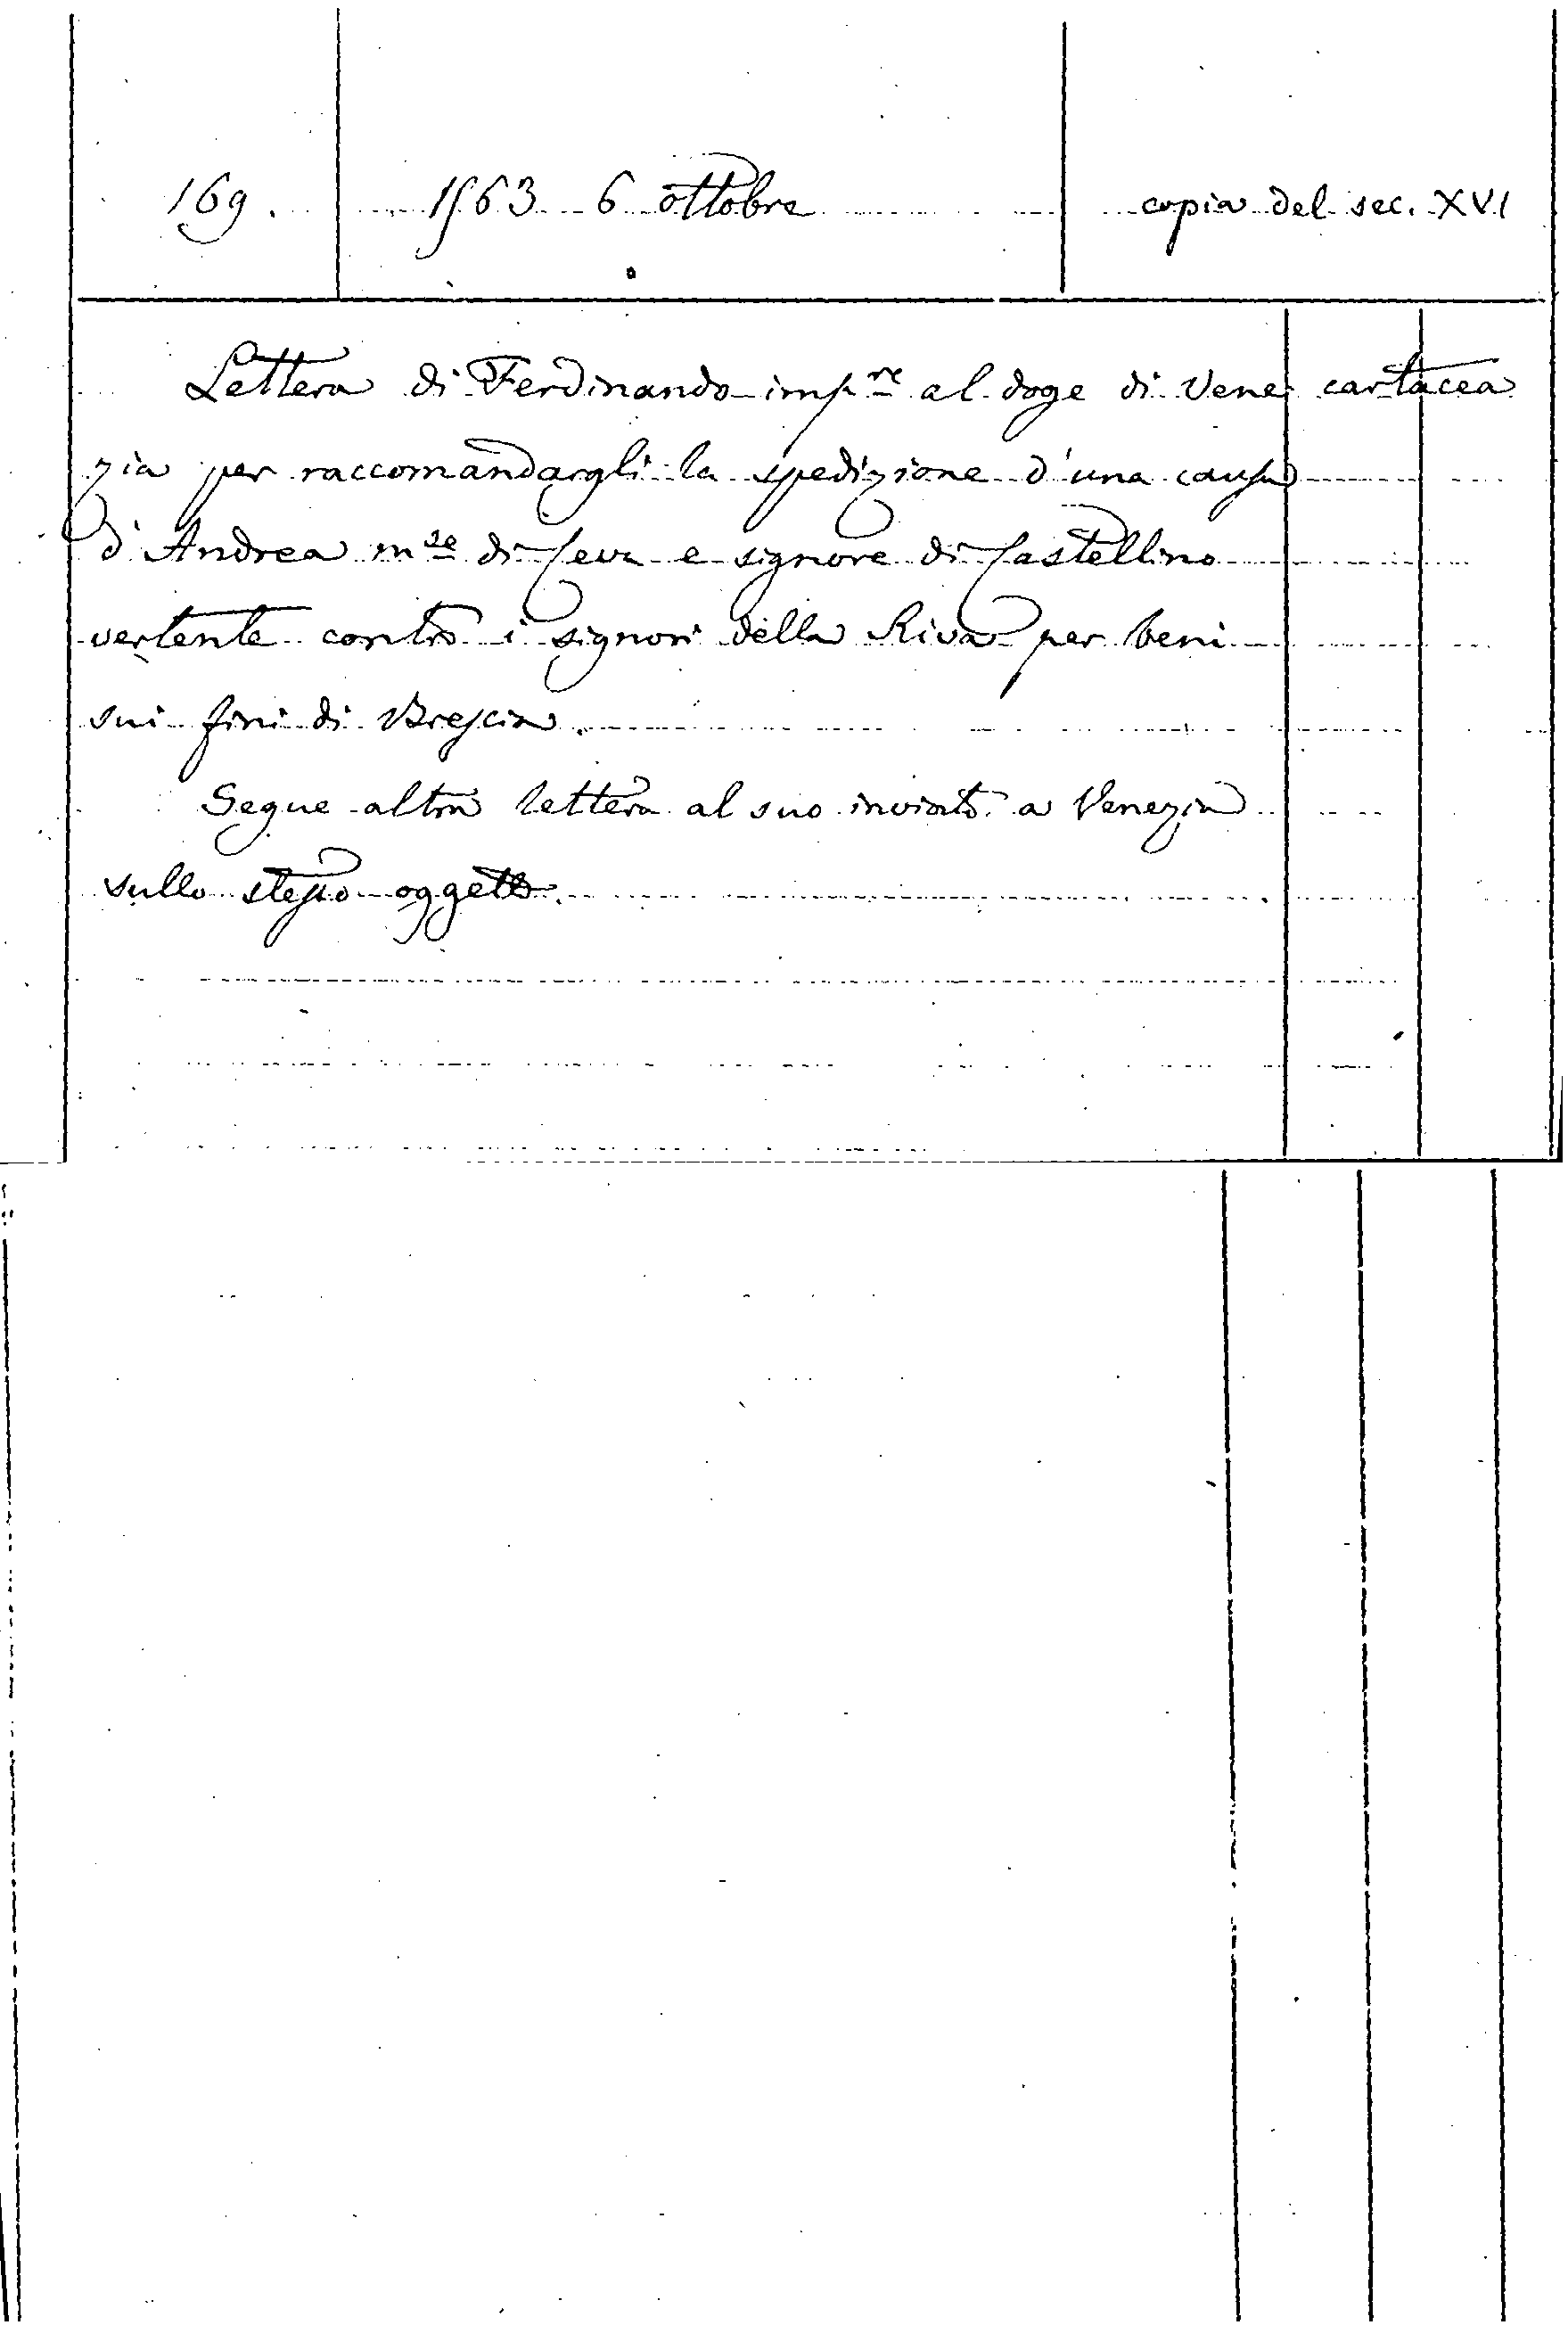 169. 1563 6 ottobre copia del sec. XVI
Lettera di Ferdinando imp.re al doge di Vene cartacea
zia per raccomandargli la spedizione d'una causa
d'Andrea m.se di Ceva e signore di Castellino
vertente contro i signori della Riva per beni
sui fini di Brescia.
Segue altra lettera al suo inviato a Venezia
sullo stesso oggetto.